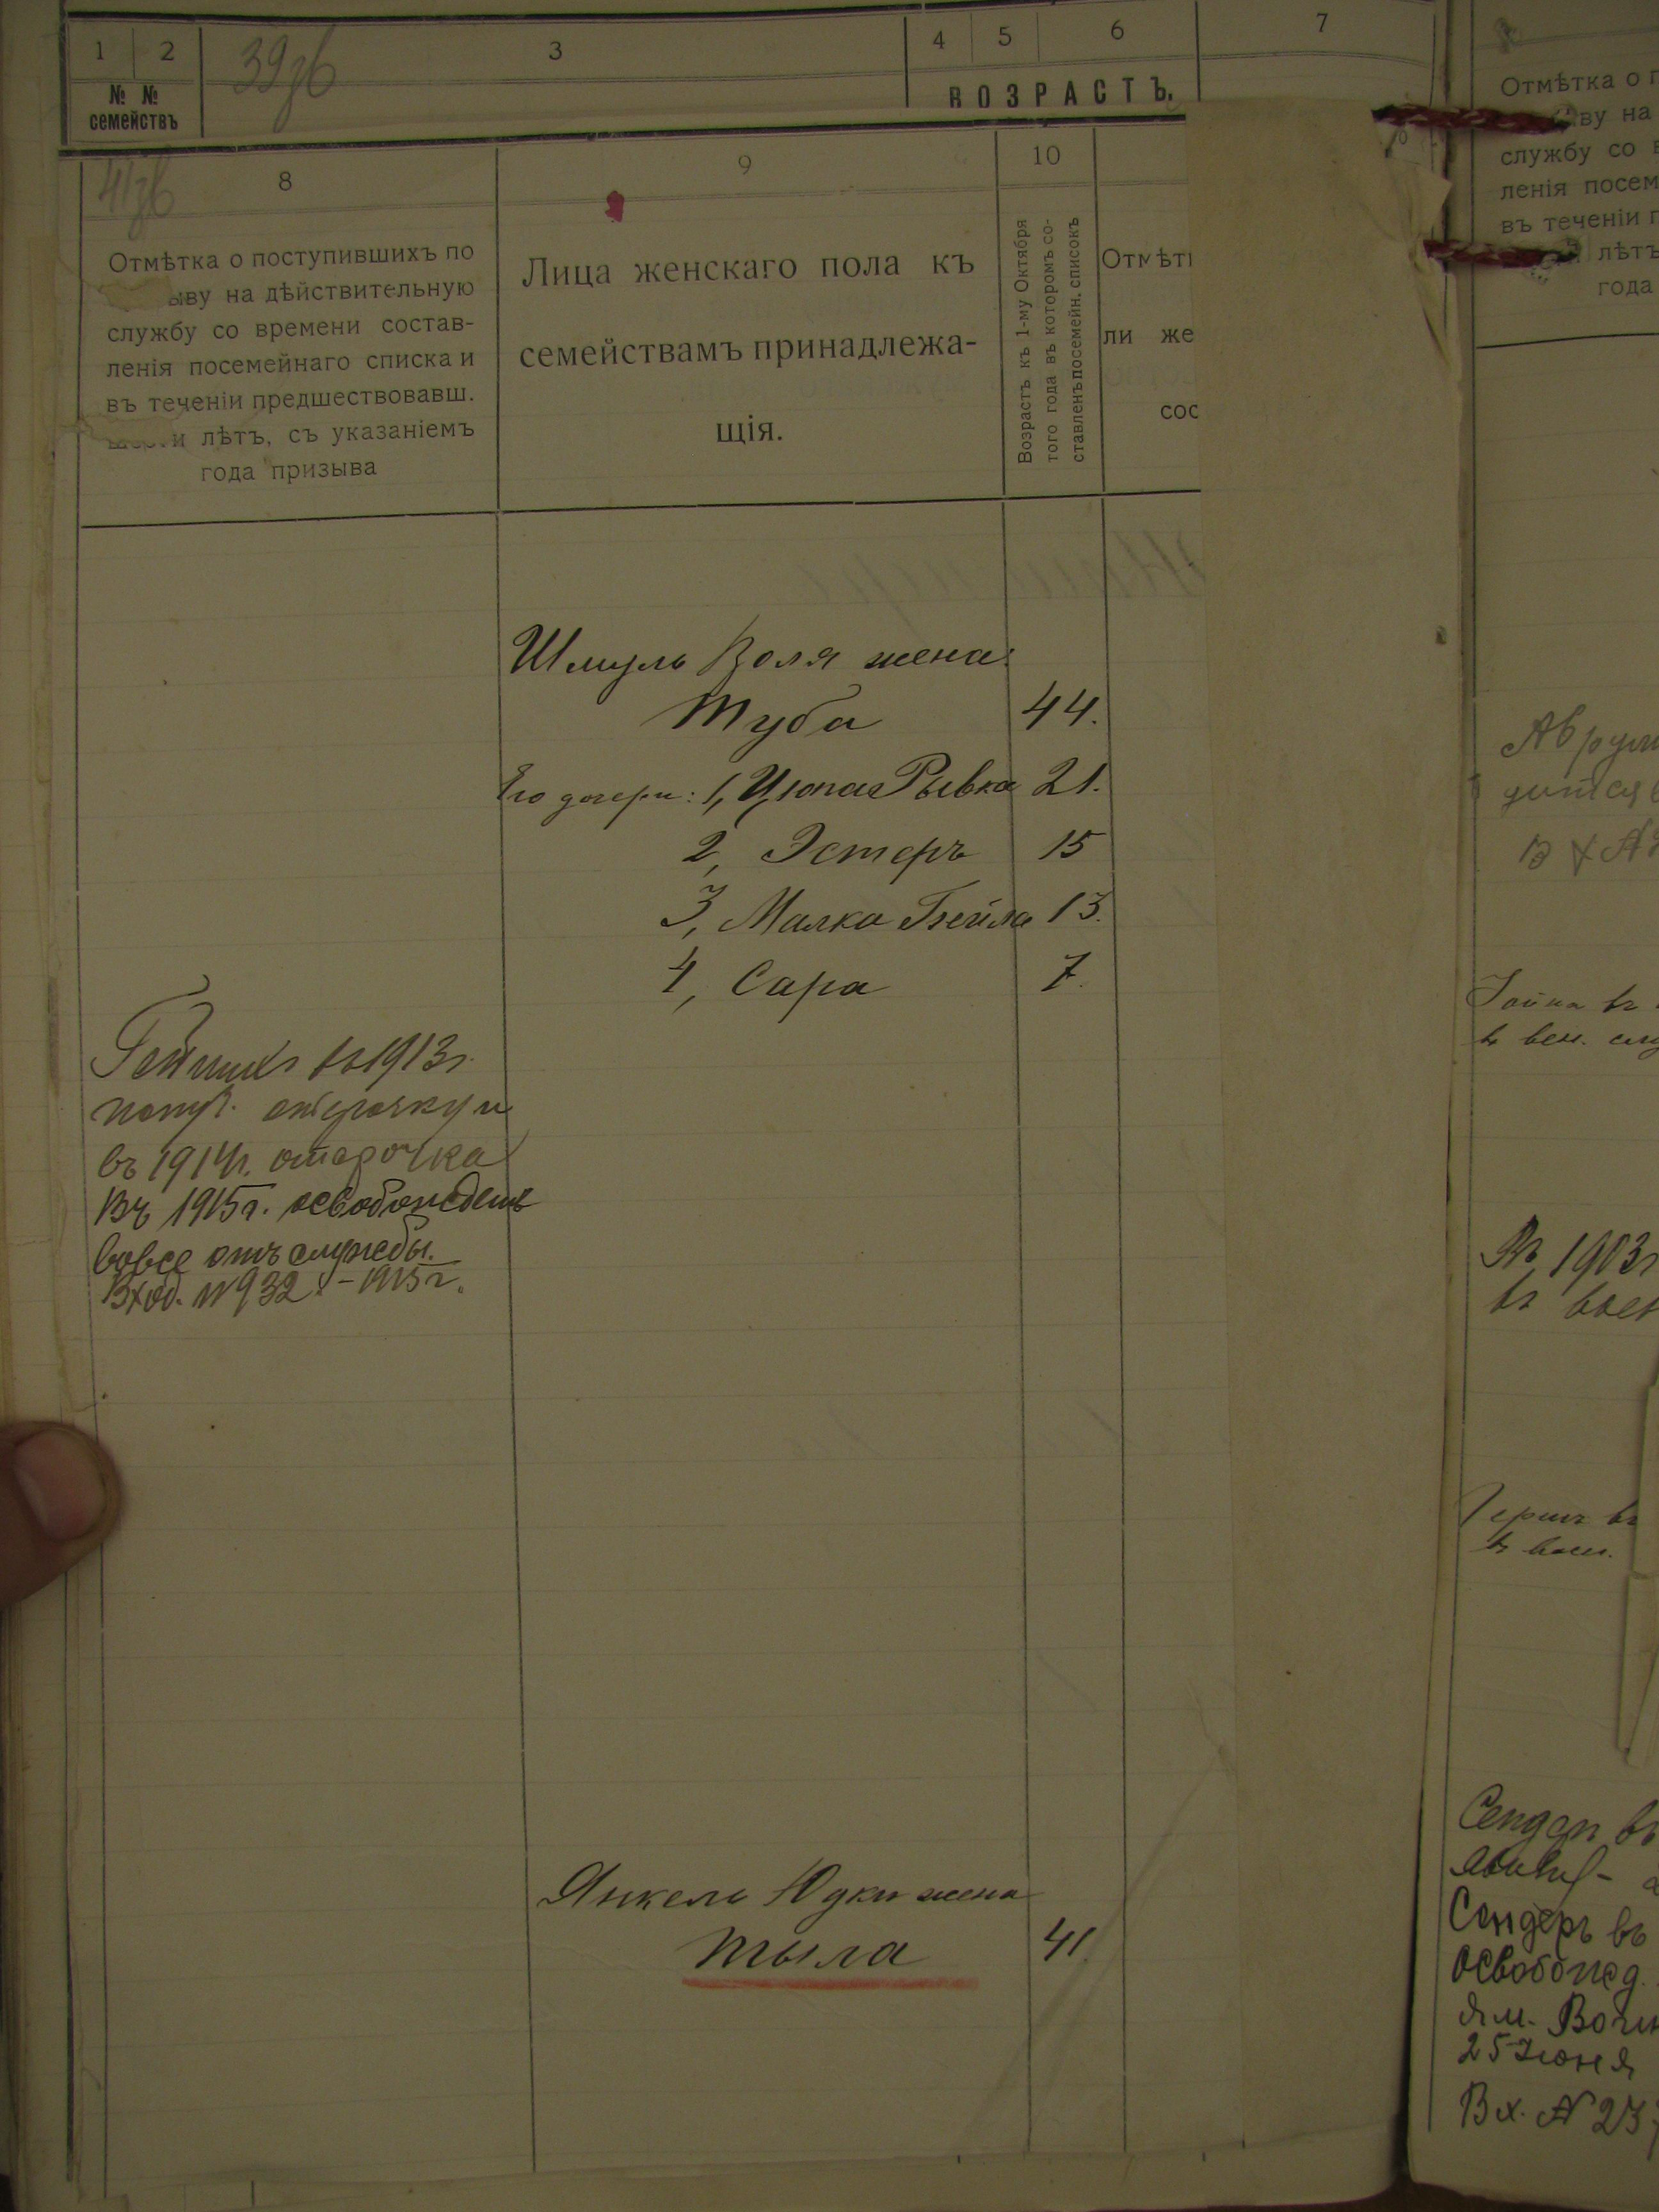 1 2 3 4 5 6 7
39зб
№ №
семействъ
ВОЗРАСТЪ.
41зб
8 9 10
Отмѣтка о поступившихъ по
ыву на дѣйствительную
службу со времени состав-
ленія посемейнаго списка и
въ теченіи предшествовавш.
и лѣтъ, съ указаніемъ
года призыва
Лица женскаго пола къ
семействамъ принадлежа-
щія.
Возрастъ къ 1-му Октября
того года въ которомъ со-
ставленъ посемейн. списокъ
Отмѣт
ли же
сос
Шмуль Воля жена:
Туба 44.
Его дочери: 1, Ципа Рывка 21.
2, Эстеръ 15
3, Малка Бейла 13.
4, Сара 7.
въ 1913г.
отсрочку и
въ 1914г. отсрочка
Въ 1915г. освобожденъ
вовсе отъ службы.
Вход. №932 - 1915г.
Янкель Юдки жена
Тыла 41.
Отмѣтка о п
ву на
службу со в
ленія посем
въ теченіи п
лѣтъ
года
въ
Въ 1903г
въ воен
Герш въ
въ воен.
Сендер въ
Сендеръ въ
освобожд.
25 Июня
Вх. № 23